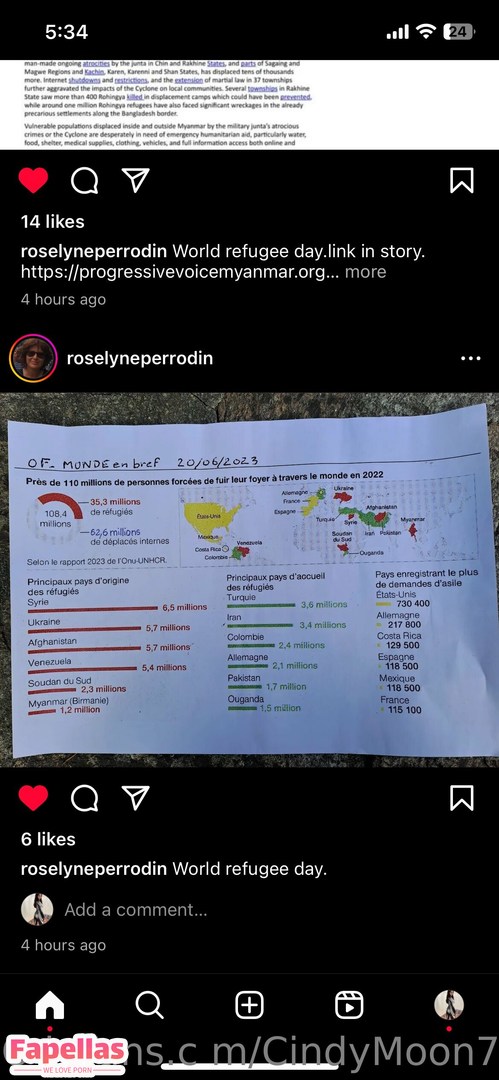 5:34
24
man-made ongoing atrocities by the junta in Chin and Rakhine States, and parts of Sagaing and
Magwe Regions and Kachin, Karen, Karenni and Shan States, has displaced tens of thousands
more. Internet shutdowns and restrictions, and the extension of martial law in 37 townships
further aggravated the impacts of the Cyclone on local communities. Several townships in Rakhine
State saw more than 400 Rohingya killed in displacement camps which could have been prevented,
while around one million Rohingya refugees have also faced significant wreckages in the already
precarious settlements along the Bangladesh border.
Vulnerable populations displaced inside and outside Myanmar by the military junta's atrocious
crimes or the Cyclone are desperately in need of emergency humanitarian aid, particularly water,
food, shelter, medical supplies, clothing, vehicles, and full information access both online and
14 likes
roselyneperrodin World refugee day.link in story.
https://progressivevoicemyanmar.org... more
4 hours ago
roselyneperrodin
OF_ MONDE en bref 20/06/2023
Près de 110 millions de personnes forcées de fuir leur foyer à travers le monde en 2022
108,4
millions
35,3 millions
de réfugiés
62,6 millions
de déplacés internes
Selon le rapport 2023 de l'Onu-UNHCR.
États-Unis
Mexique
Costa Rica
Colombie
Venezuela
Allemagne
France
Espagne
Ukraine
Turquie
Syrie
Afghanistan
Iran
Pakistan
Myanmar
Soudan
du Sud
Ouganda
Principaux pays d'origine
des réfugiés
Syrie
6,5 millions
Ukraine
5,7 millions
Afghanistan
5,7 millions
Venezuela
5,4 millions
Soudan du Sud
2,3 millions
Myanmar (Birmanie)
1,2 million
Principaux pays d'accueil
de réfugiés
Turquie
3,6 millions
Iran
3,4 millions
Colombie
2,4 millions
Allemagne
2,1 millions
Pakistan
1,7 million
Ouganda
1,5 million
Pays enregistrant le plus
de demandes d'asile
États-Unis
730 400
Allemagne
217 800
Costa Rica
129 500
Espagne
118 500
Mexique
118 500
France
115 100
6 likes
roselyneperrodin World refugee day.
Add a comment...
4 hours ago
Fapellas
WE LOVE PORN
ns.c m/CindyMoon7